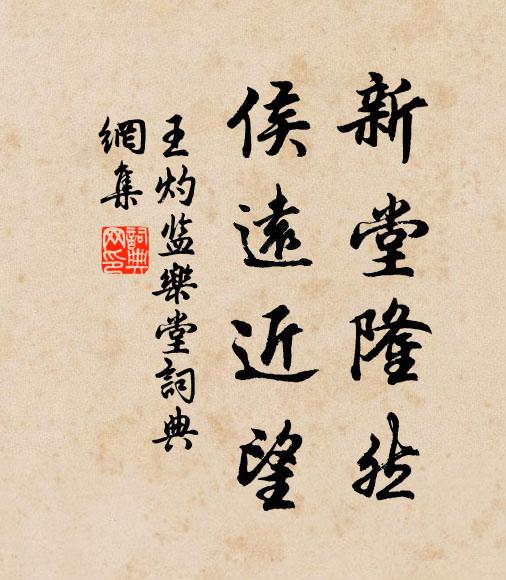 新堂隆然
侯遠近望
王灼监樂堂詞典
網集
詞典
网印